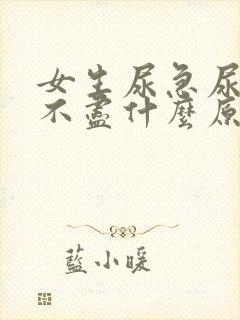 女生尿急尿
不盡什麼原
藍小暖